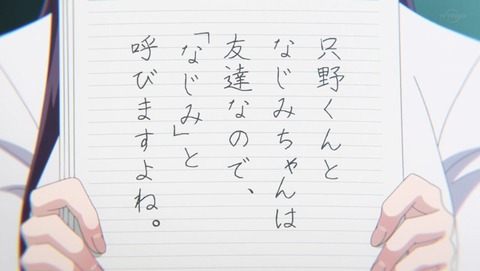 只野くんと
なじみちゃんは
友達なので、
「なじみ」と
呼びますよね。